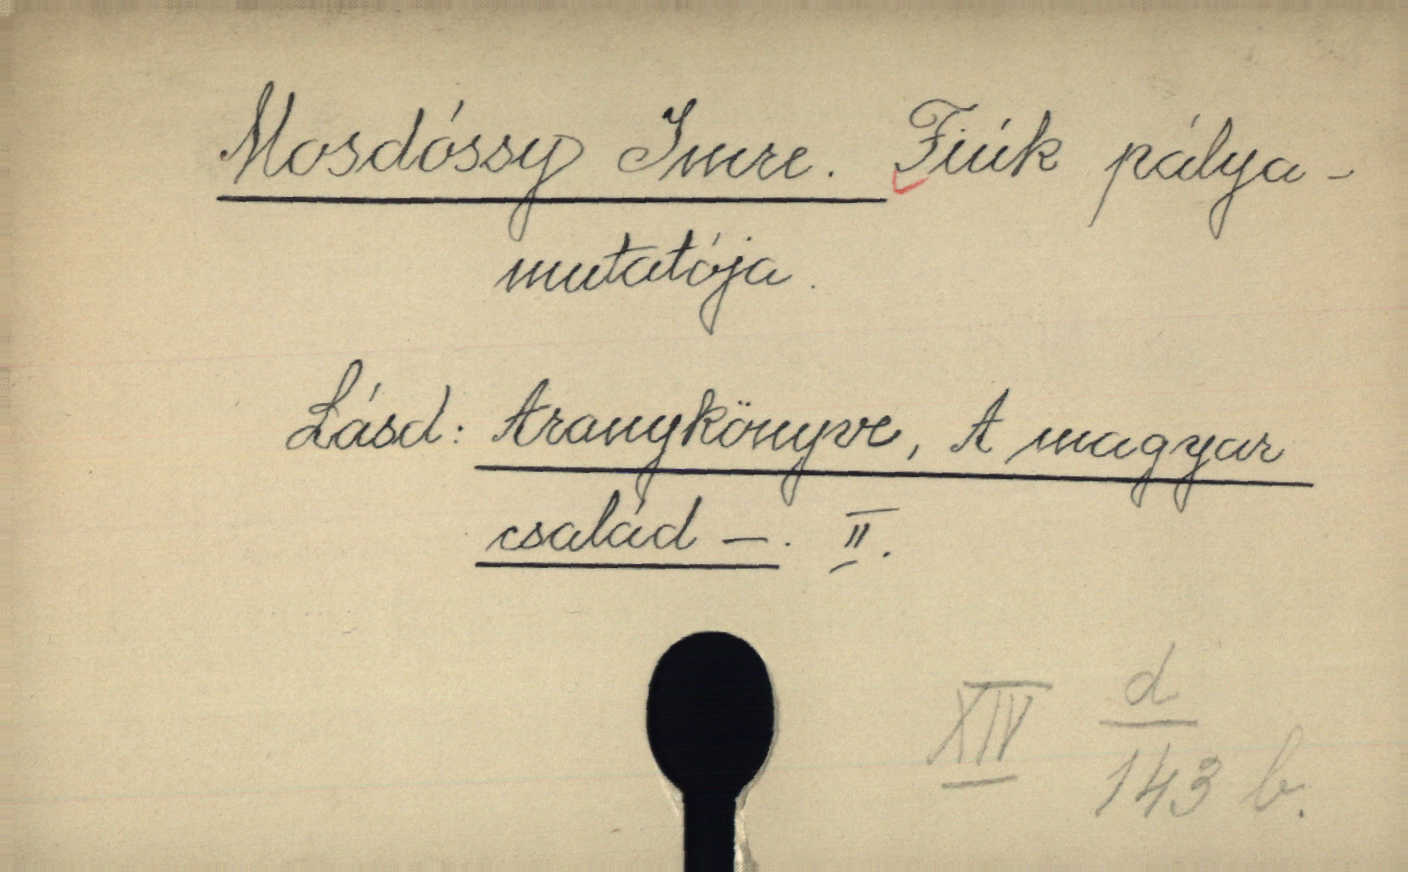 Mosdóssy Imre. Fiúk pálya-
mutatója.
Lásd: Aranykönyve, A magyar
család –. II.
XIV d/143 b.